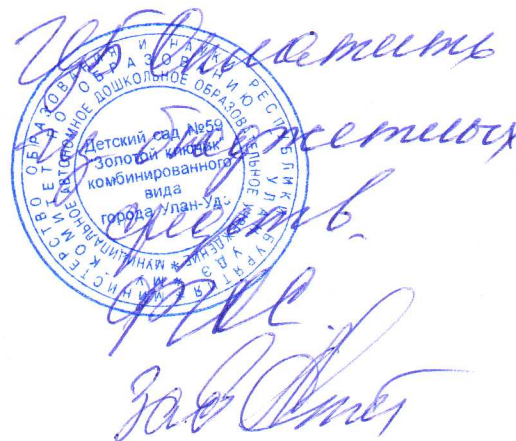 Оплатить
из бюджетных
средств.
ФГОС
Зав
МИНИСТЕРСТВО ОБРАЗОВАНИЯ И НАУКИ РЕСПУБЛИКИ БУРЯТИЯ
КОМИТЕТ ПО ОБРАЗОВАНИЮ Г. УЛАН-УДЭ
МУНИЦИПАЛЬНОЕ АВТОНОМНОЕ ДОШКОЛЬНОЕ ОБРАЗОВАТЕЛЬНОЕ УЧРЕЖДЕНИЕ
Детский сад №59
"Золотой ключик"
комбинированного
вида
города Улан-Удэ